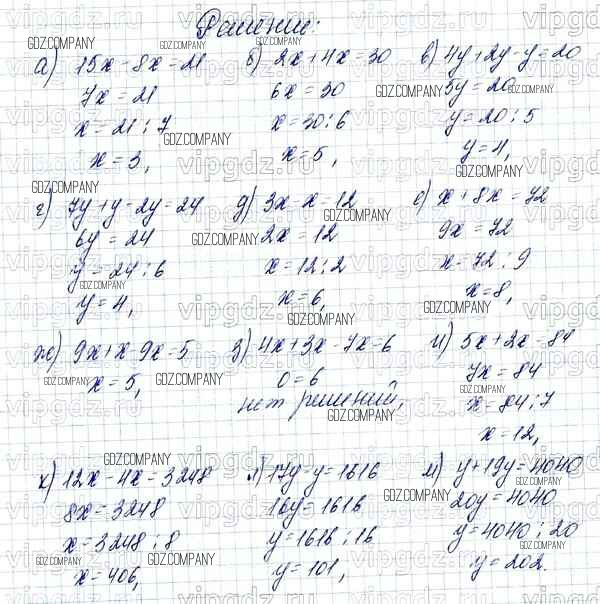 Решение:
а) 15x - 8x = 21
7x = 21
x = 21 : 7
x = 3,
б) 2x + 4x = 30
6x = 30
x = 30 : 6
x = 5,
в) 4y + 2y - y = 20
5y = 20
y = 20 : 5
y = 4,
г) 7y + y - 2y = 24
6y = 24
y = 24 : 6
y = 4,
д) 3x - x = 12
2x = 12
x = 12 : 2
x = 6,
е) x + 8x = 72
9x = 72
x = 72 : 9
x = 8,
ж) 9x + x - 9x = 5
x = 5,
з) 4x + 3x - 7x = 6
0 = 6
нет решений,
и) 5x + 2x = 84
7x = 84
x = 84 : 7
x = 12,
к) 12x - 4x = 3248
8x = 3248
x = 3248 : 8
x = 406,
л) 17y - y = 1616
16y = 1616
y = 1616 : 16
y = 101,
м) y + 19y = 4040
20y = 4040
y = 4040 : 20
y = 202.
GDZ.COMPANY
vipgdz.ru